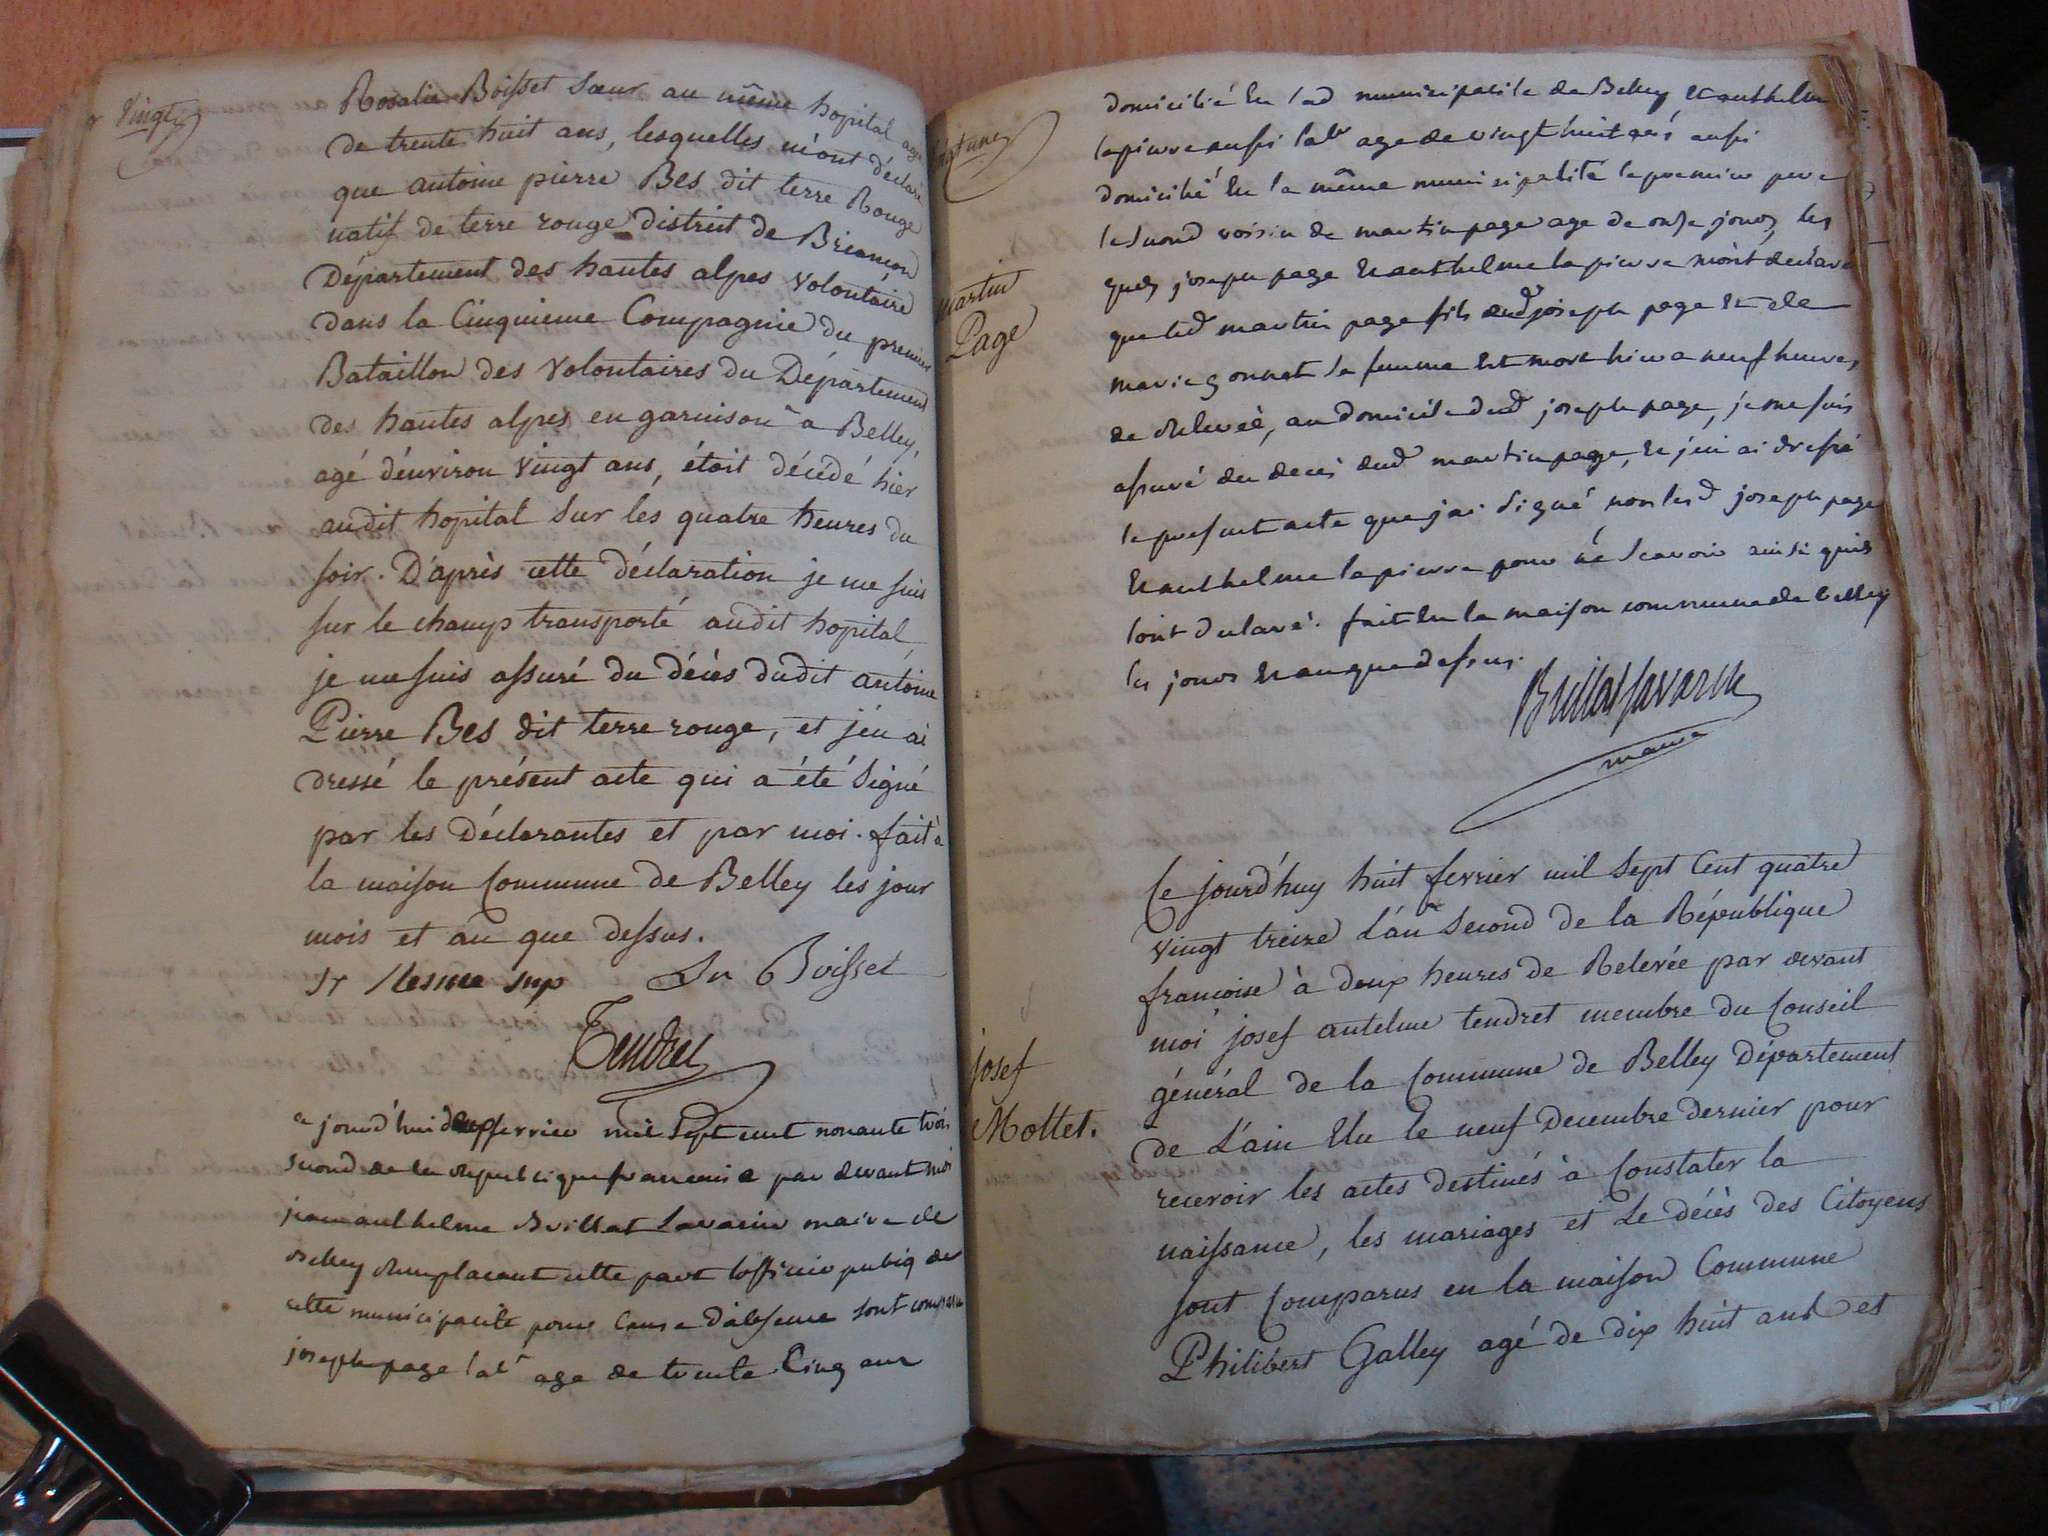 Vingt
Rosalie Boisset Sœur au même hopital agé
de trente huit ans, lesquelles m'ont déclaré
que antoine pierre Bes dit terre Rouge
natif de terre rouge district de Briançon
Département des hautes alpes volontaire
dans la Cinquieme Compagnie du premier
Bataillon des Volontaires du Département
des hautes alpes en garnison à Belley,
agé d'environ vingt ans, étoit décédé hier
audit hopital sur les quatre heures du
soir. D'après cette déclaration je me suis
sur le champ transporté audit hopital,
je me suis assuré du décès dudit antoine
Pierre Bes dit terre rouge, et j'en ai
dressé le présent acte qui a été signé
par les Déclarantes et par moi. fait à
la maison Commune de Belley les jour
mois et an que dessus.
Sr sup Sr Boisset
Tendret
jourd'hui fevrier mil sept cent nonante trois
second de la republique francaise par devant moi
jeananthelme Brillat Savarin maire de
Belley remplacant cette part l'officier publiq de
cette municipalité pour cause d'absence sont comparu
joseph page labr age de trente cinq ans
domicilié en lad municipalité de Belley et anthelme
lapierre aussi labr age de vingt huit ans aussi
domicilié en la même municipalité le premier pere
le second voisin de martin page age de onze jours, les
quels joseph page et anthelme lapierre m'ont declaré
que led martin page fils dud joseph page et de
marie gonnet sa femme est mort hier a neuf heures
de relevée, au domicile dud joseph page, je me suis
assuré du deces dud martin page, et j'en ai dressé
le present acte que j'ai signé non lesd joseph page
et anthelme lapierre pour ne scavoir ainsi quils
l'ont declaré. fait en la maison commune de belley
les jours et an que dessus.
Brillat Savarin
maire
martin
Page
Ce jourd'huy huit fevrier mil sept Cent quatre
vingt treize L'an second de la République
françoise à deux heures de Relevée par devant
moi josef antelme tendret membre du Conseil
général de la Commune de Belley Département
de L'ain Elu le neuf Decembre dernier pour
recevoir les actes destinés à Constater la
naissance, les mariages et le décès des Citoyens
sont Comparus en la maison Commune
Philibert Galley agé de dix huit ans et
josef
Mollet.